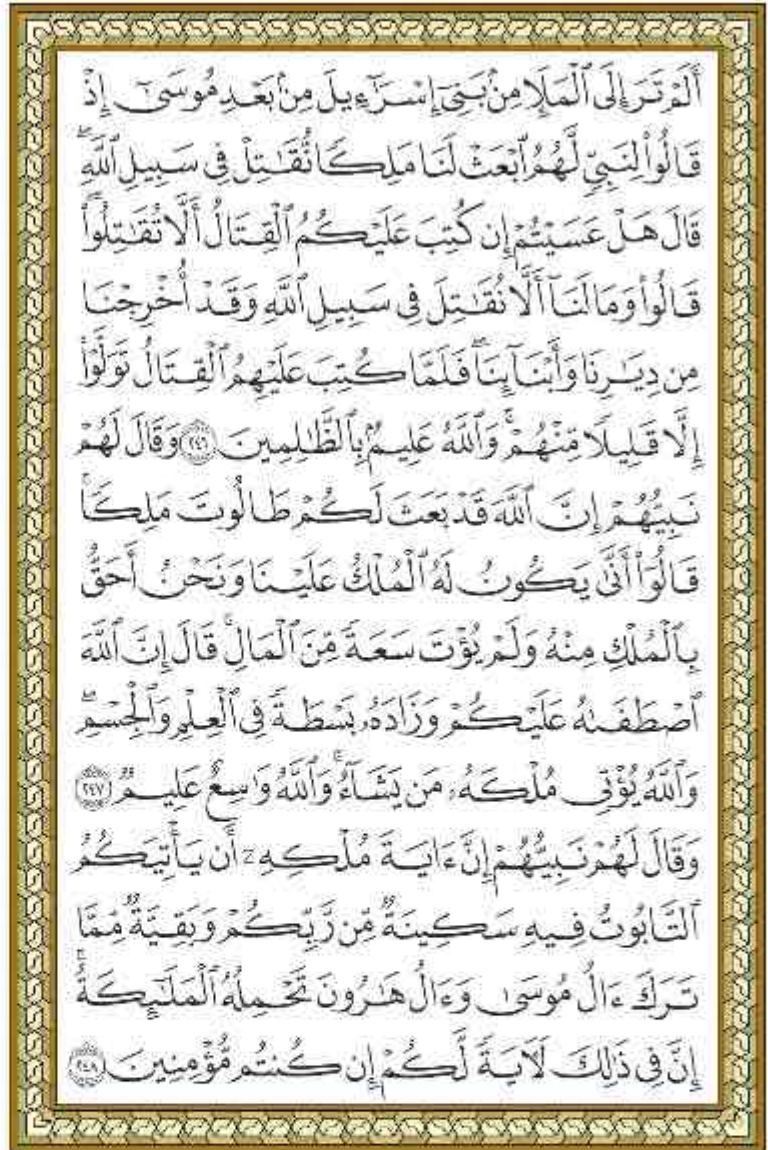 أَلَمْ تَرَ إِلَى ٱلْمَلَإِ مِنۢ بَنِىٓ إِسْرَٰٓءِيلَ مِنۢ بَعْدِ مُوسَىٰٓ إِذْ
قَالُوا۟ لِنَبِىٍّ لَّهُمُ ٱبْعَثْ لَنَا مَلِكًا نُّقَٰتِلْ فِى سَبِيلِ ٱللَّهِ ۖ
قَالَ هَلْ عَسَيْتُمْ إِن كُتِبَ عَلَيْكُمُ ٱلْقِتَالُ أَلَّا تُقَٰتِلُوا۟ ۖ
قَالُوا۟ وَمَا لَنَآ أَلَّا نُقَٰتِلَ فِى سَبِيلِ ٱللَّهِ وَقَدْ أُخْرِجْنَا
مِن دِيَٰرِنَا وَأَبْنَآئِنَا ۖ فَلَمَّا كُتِبَ عَلَيْهِمُ ٱلْقِتَالُ تَوَلَّوْا۟
إِلَّا قَلِيلًا مِّنْهُمْ ۗ وَٱللَّهُ عَلِيمٌۢ بِٱلظَّٰلِمِينَ ٢٤٦ وَقَالَ لَهُمْ
نَبِيُّهُمْ إِنَّ ٱللَّهَ قَدْ بَعَثَ لَكُمْ طَالُوتَ مَلِكًا ۚ
قَالُوٓا۟ أَنَّىٰ يَكُونُ لَهُ ٱلْمُلْكُ عَلَيْنَا وَنَحْنُ أَحَقُّ
بِٱلْمُلْكِ مِنْهُ وَلَمْ يُؤْتَ سَعَةً مِّنَ ٱلْمَالِ ۚ قَالَ إِنَّ ٱللَّهَ
ٱصْطَفَىٰهُ عَلَيْكُمْ وَزَادَهُۥ بَسْطَةً فِى ٱلْعِلْمِ وَٱلْجِسْمِ ۖ
وَٱللَّهُ يُؤْتِى مُلْكَهُۥ مَن يَشَآءُ ۚ وَٱللَّهُ وَٰسِعٌ عَلِيمٌ ٢٤٧
وَقَالَ لَهُمْ نَبِيُّهُمْ إِنَّ ءَايَةَ مُلْكِهِۦٓ أَن يَأْتِيَكُمُ
ٱلتَّابُوتُ فِيهِ سَكِينَةٌ مِّن رَّبِّكُمْ وَبَقِيَّةٌ مِّمَّا
تَرَكَ ءَالُ مُوسَىٰ وَءَالُ هَٰرُونَ تَحْمِلُهُ ٱلْمَلَٰٓئِكَةُ ۚ
إِنَّ فِى ذَٰلِكَ لَءَايَةً لَّكُمْ إِن كُنتُم مُّؤْمِنِينَ ٢٤٨